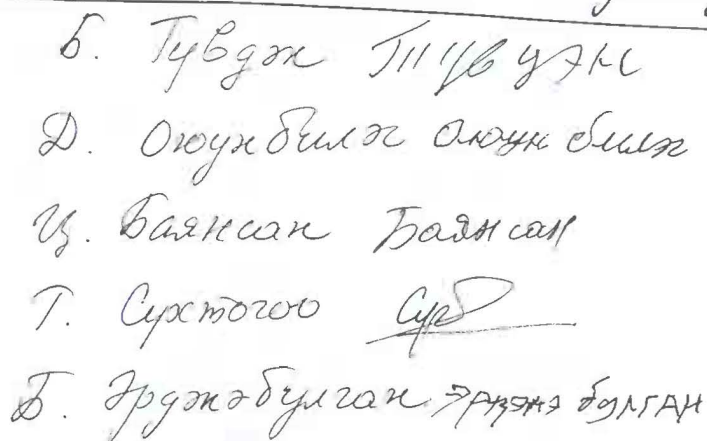 Б. Тувдэн Түвдэн
Д. Оюунбилэг Оюун билэг
Ц. Баянсан Баянсан
Т. Сүхтогоо
Б. Эрдэнэбулган Эрдэнэ булган